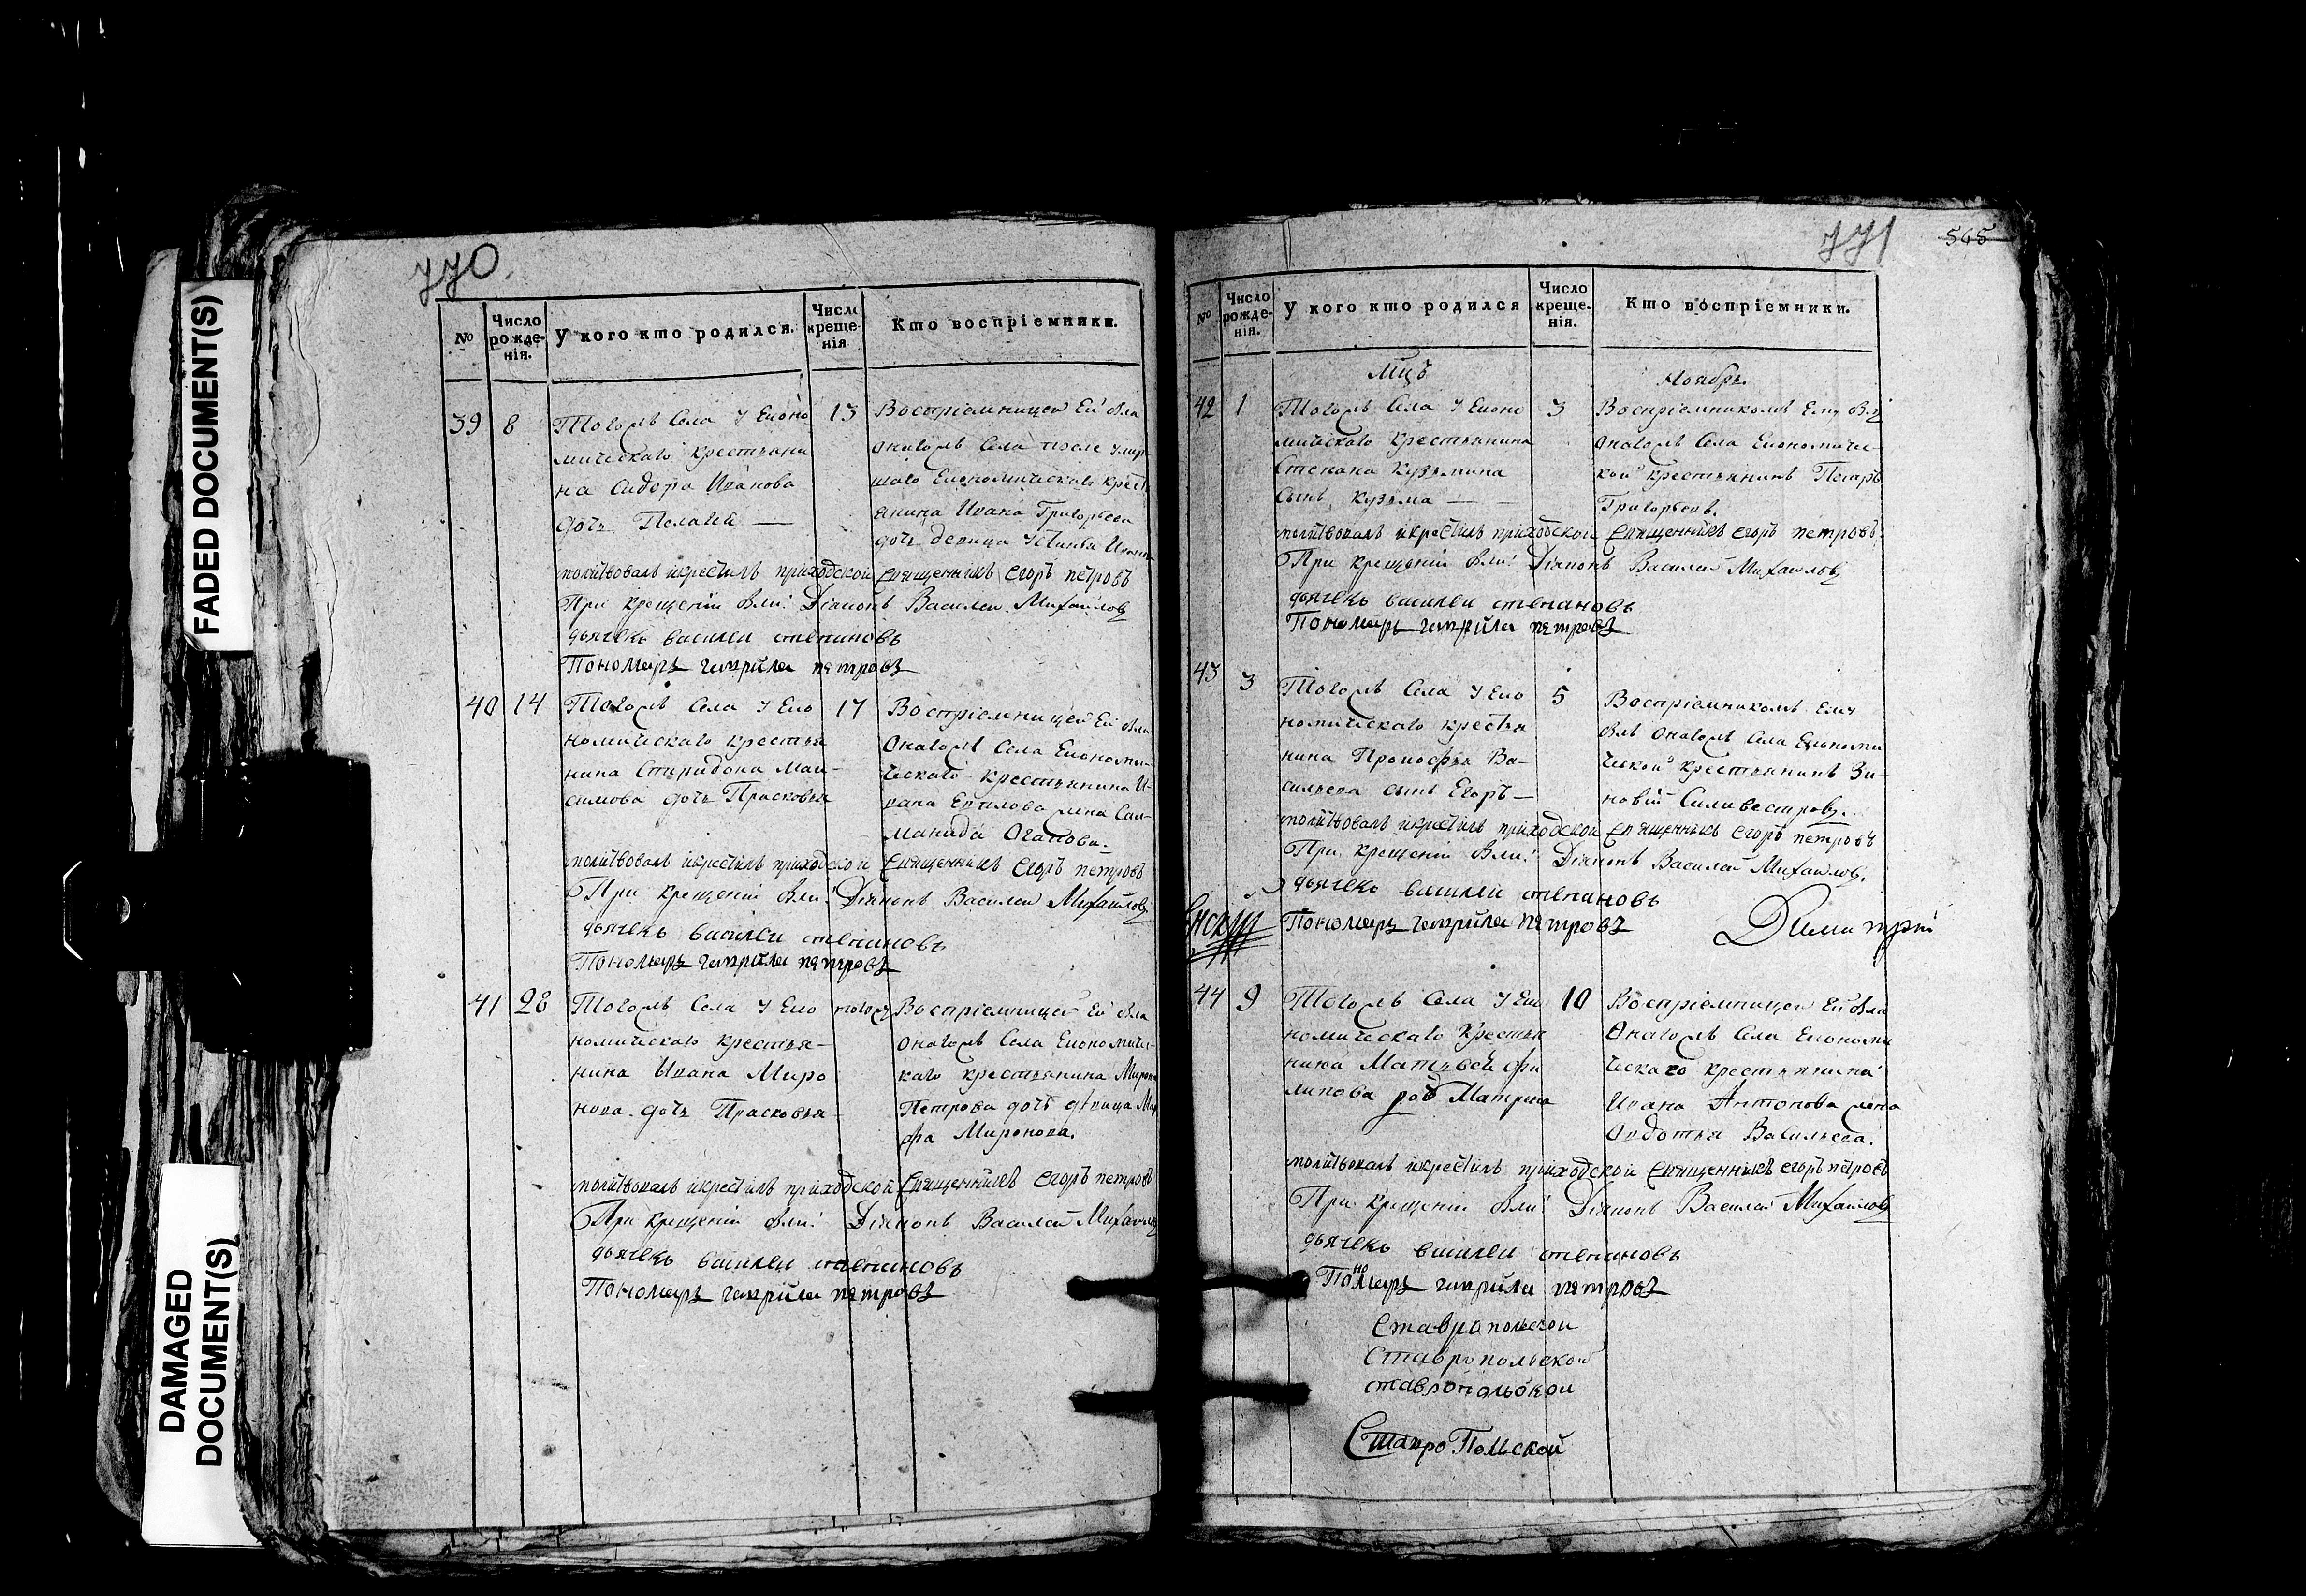 FADED DOCUMENT(S)
DAMAGED DOCUMENT(S)
770.
№
Число рожде-нія.
У кого кто родился.
Число креще-нія
Кто воспріемники.
39 8
Тогожъ Села у Економическаго крестьяни
на Сидора Иванова
дочь Пелагия —
13
Воспріемницею Ей была
Оногожъ Села после умер
шаго Економическаго крест
янина Ивана Григорьева
дочь девица Устинья Иванова
молитвовалъ и крестилъ приходской священникъ Егоръ Петровъ
При крещеніи были: Діяконъ Василей Михайловъ
дьячекъ василеи степановъ
Пономарь гаврила петровъ
40 14
Тогожъ Села у Эко
номическаго крестья
нина Спиридона Мак-
симова дочь Прасковья
17
Воспріемницею Ей была
Оногожъ Села Економи-
ческаго крестьянина И-
вана жена
молитвовалъ и крестилъ приходской священникъ Егоръ Петровъ
При крещеніи были: Діяконъ Василей Михайловъ
дьячекъ василеи степановъ
Пономарь гаврила петровъ
41 28
Тогожъ Села у Эко
номическаго крестья-
нина Ивана Миро
нова дочь Прасковья-
тогожъ
Воспріемницею Ей была
Оногожъ Села Економиче-
каго крестьянина Мирона
Петрова дочь девица Мар
фа Миронова.
молитвовалъ и крестилъ приходской священникъ Егоръ Петровъ
При крещеніи были: Діяконъ Василей Михайловъ
дьячекъ василеи степановъ
Пономарь гаврила петровъ
771
565
№
Число рожде-нія.
У кого кто родился
Число креще-нія.
Кто воспріемники.
Мцъ Ноябрь.
42 1
Тогожъ Села у Еконо
мическаго Крестьянина
Степана Кузьмина
Сынъ Кузьма —
3
Воспріемникомъ Ему былъ
Оногожъ Села Економичес
кой крестьянинъ Петръ
Григорьевъ.
молитвовалъ и крестилъ приходской священникъ Егоръ Петровъ.
При крещеніи были: Діяконъ Василей Михайловъ
дьячекъ василеи степановъ
Пономарь гаврила петровъ
43 3
Тогожъ Села у Эко
номическаго крестья
нина Прокофья Ва-
сильева сынъ Егоръ —
5
Воспріемникомъ Ему
былъ Оногожъ Села Економи
ческой крестьянинъ Зи-
новій Силивестровъ.
молитвовалъ и крестилъ приходской священникъ Егоръ Петровъ
При крещеніи были: Діяконъ Василей Михайловъ.
дьячекъ василеи степановъ
Пономарь гаврила петровъ
Димитрій
44 9
Тогожъ Села у Эко
номическаго Крестья
нина Матвея Фи
липова дочь Матрена
10
Воспріемницею Ей была
Оногожъ Села Економи
ческаго крестьянина
Ивана Антонова жена
Овдотья Васильева.
молитвовалъ и крестилъ приходской священникъ Егоръ Петровъ
При крещеніи были: Діяконъ Василей Михайловъ
дьячекъ василеи степановъ
Пономарь гаврила петровъ
Ставропольской
Ставропольской
ставропольской
СтавроПольской